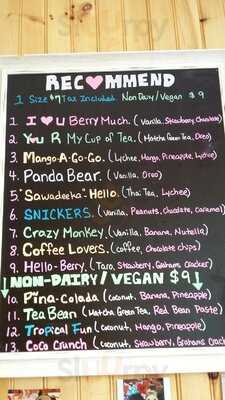 REC♥MMEND
1 Size $7 Tax Included Non Dairy/Vegan $9
1. I ♥ U Berry Much. (Vanilla, Strawberry, Chocolate)
2. You R My Cup of Tea. (Matcha Green Tea, Oreo)
3. Mango-A-Go-Go. (Lychee, Mango, Pineapple, Lychee)
4. Panda Bear. (Vanilla, Oreo)
5. "Sawadeeka" Hello. (Thai Tea, Lychee)
6. SNICKERS. (Vanilla, Peanuts, Chocolate, Caramel)
7. Crazy Monkey. (Vanilla, Banana, Nutella)
8. Coffee Lovers. (Coffee, Chocolate chips)
9. Hello-Berry. (Taro, Strawberry, Graham Cracker)
NON-DAIRY/VEGAN $9
10. Pina-Colada (Coconut, Banana, Pineapple)
11. Tea Bean (Matcha Green Tea, Red Bean Paste)
12. Tropical Fun (Coconut, Mango, Pineapple)
13. Coco Crunch (Coconut, Strawberry, Graham Crack